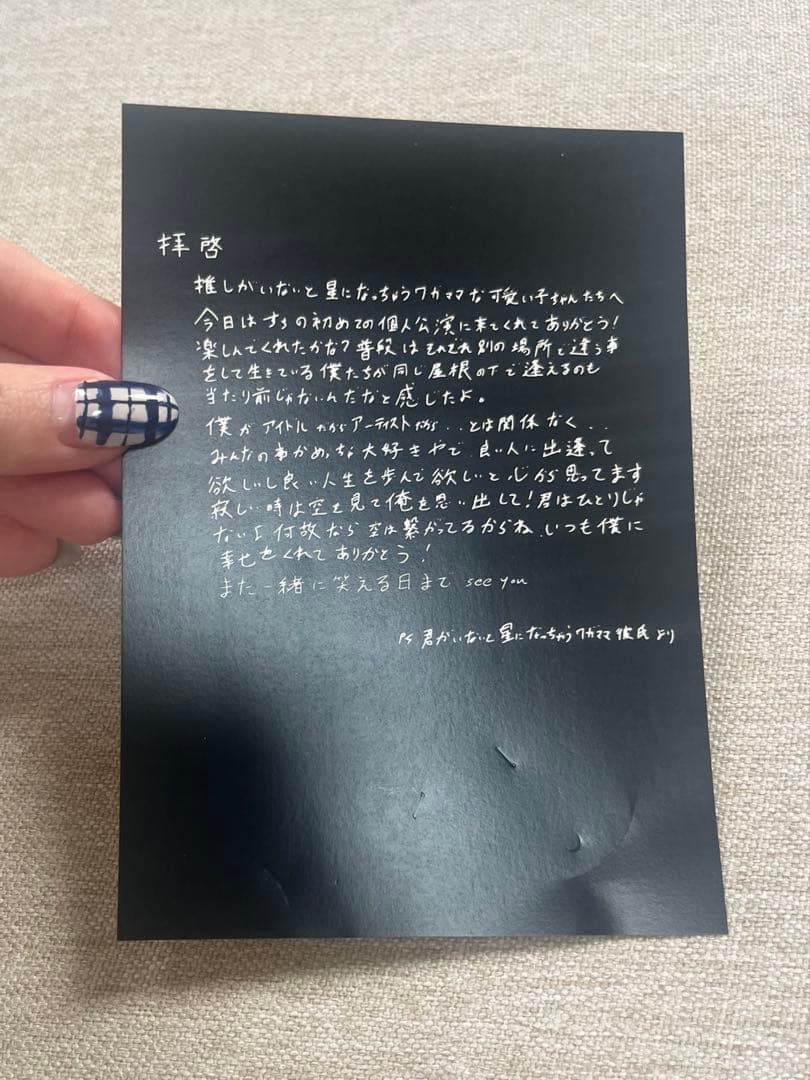 拝啓
推しがいないと星になっちゃうワガママな可愛い子ちゃんたちへ
今日はすちの初めての個人公演に来てくれてありがとう!
楽しんでくれたかな?普段はそれぞれ別の場所で違う事
をして生きている僕たちが同じ屋根の下で逢えるのも
当たり前じゃないんだなと感じたよ。
僕がアイドルだからアーティストだから..とは関係なく..
みんなの事がめっちゃ大好きやで 良い人に出逢って
欲しいし良い人生を歩んで欲しいと心から思ってます
寂しい時は空を見て俺を思い出して!君はひとりじゃ
ないよ何故なら空は繋がってるからね、いつも僕に
幸せをくれてありがとう!
また一緒に笑える日まで see you
PS 君がいないと星になっちゃうワガママ彼氏より